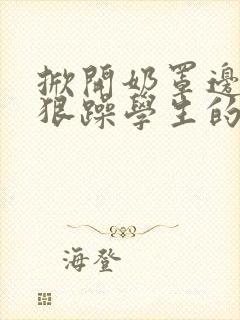 掀開奶罩邊
狠躁學生的
海登